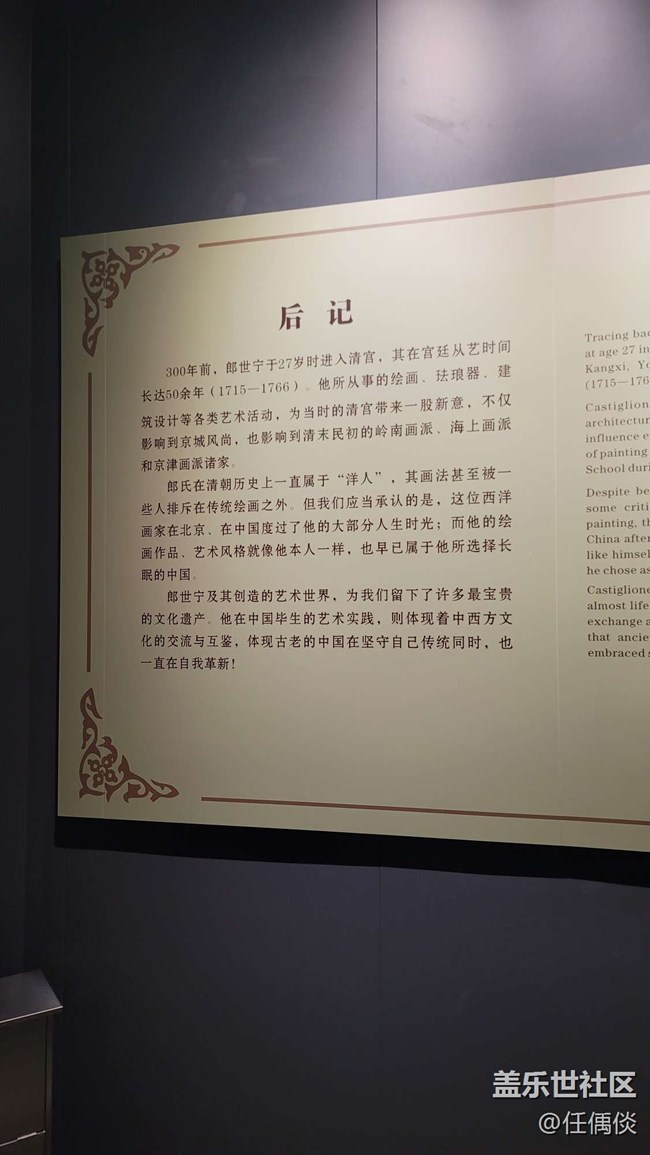 后 记
300年前，郎世宁于27岁时进入清宫，其在宫廷从艺时间
长达50余年（1715—1766）。他所从事的绘画、珐琅器、建
筑设计等各类艺术活动，为当时的清宫带来一股新意，不仅
影响到京城风尚，也影响到清末民初的岭南画派、海上画派
和京津画派诸家。
郎氏在清朝历史上一直属于“洋人”，其画法甚至被一
些人排斥在传统绘画之外。但我们应当承认的是，这位西洋
画家在北京、在中国度过了他的大部分人生时光；而他的绘
画作品、艺术风格就像他本人一样，也早已属于他所选择长
眠的中国。
郎世宁及其创造的艺术世界，为我们留下了许多最宝贵
的文化遗产。他在中国毕生的艺术实践，则体现着中西方文
化的交流与互鉴，体现古老的中国在坚守自己传统同时，也
一直在自我革新！
Tracing bac
at age 27 in
Kangxi, Yo
(1715—176
Castiglion
architectur
influence e
of painting
School duri
Despite be
some criti
painting, th
China after
like himsel
he chose as
Castiglione
almost life
exchange a
that ancie
embraced s
盖乐世社区
@任偶倓